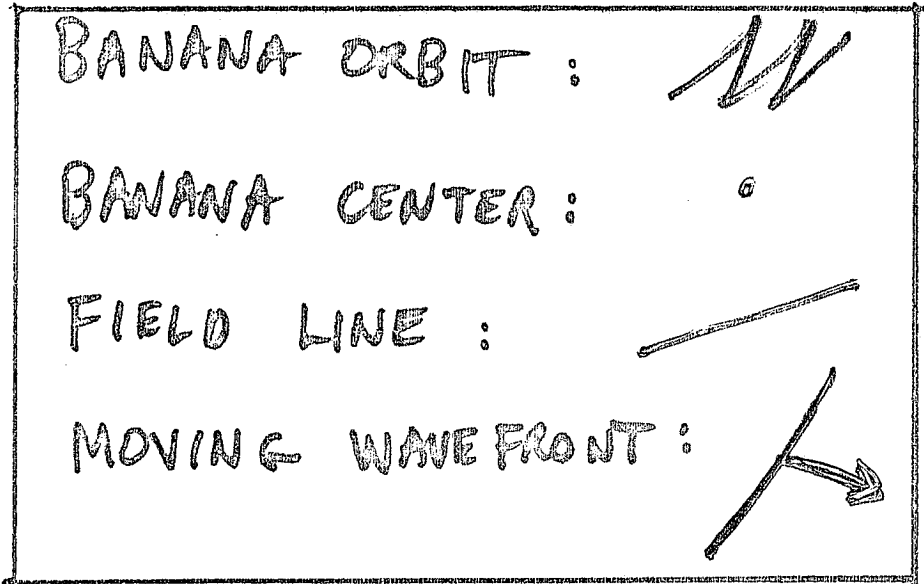 BANANA ORBIT :
BANANA CENTER :
FIELD LINE :
MOVING WAVEFRONT :